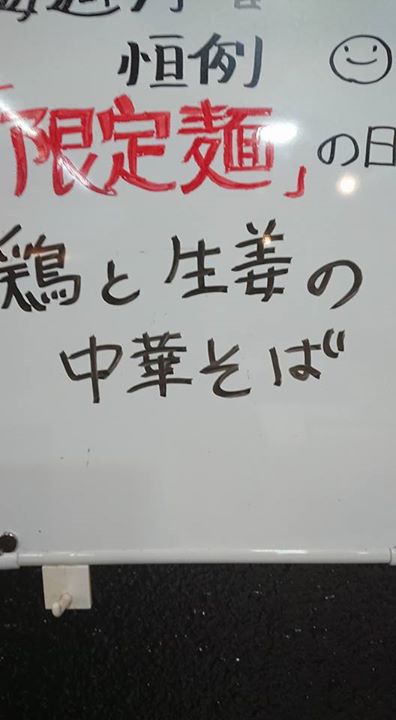 恒例
「限定麺」の日
鶏と生姜の
中華そば